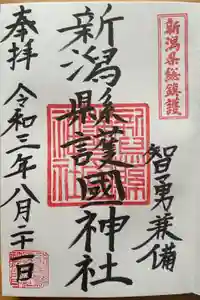 新潟県総鎮護
智勇兼備
新潟縣護國神社
奉拝
令和三年八月二十二日